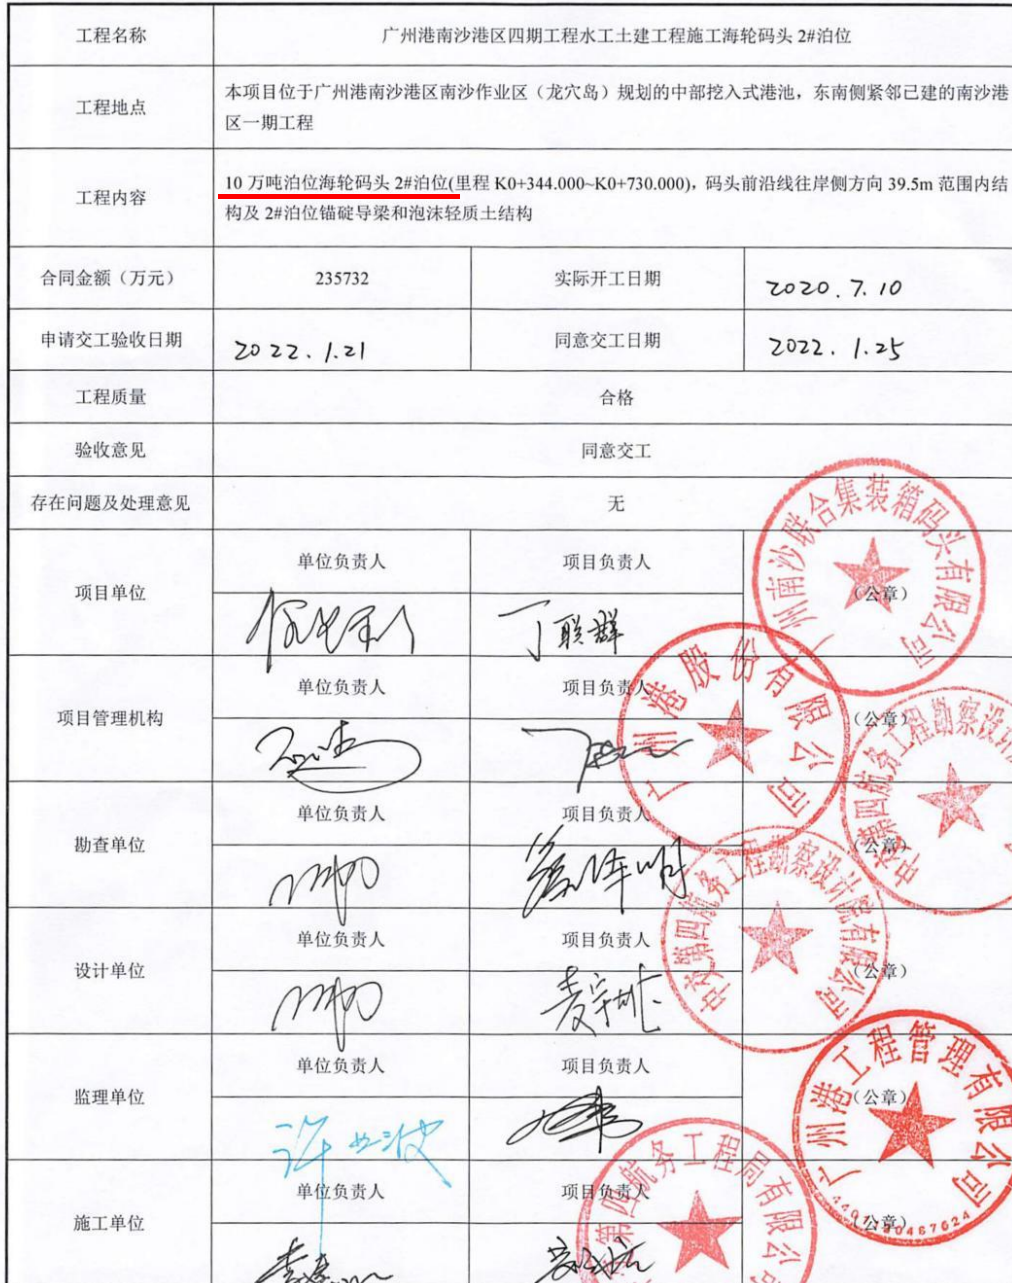 工程名称
广州港南沙港区四期工程水工土建工程施工海轮码头 2#泊位
工程地点
本项目位于广州港南沙港区南沙作业区（龙穴岛）规划的中部挖入式港池，东南侧紧邻已建的南沙港
区一期工程
工程内容
10 万吨泊位海轮码头 2#泊位(里程 K0+344.000~K0+730.000)，码头前沿线往岸侧方向 39.5m 范围内结
构及 2#泊位锚碇导梁和泡沫轻质土结构
合同金额（万元）
235732
实际开工日期
2020.7.10
申请交工验收日期
2022.1.21
同意交工日期
2022.1.25
工程质量
合格
验收意见
同意交工
存在问题及处理意见
无
项目单位
单位负责人
项目负责人
丁联群
（公章）
广州南沙联合集装箱码头有限公司
项目管理机构
单位负责人
项目负责人
（公章）
广州港股份有限公司
勘查单位
单位负责人
项目负责人
（公章）
中交第四航务工程勘察设计
设计单位
单位负责人
项目负责人
（公章）
中交第四航务工程勘察设计院有限公司
监理单位
单位负责人
项目负责人
（公章）
广州港工程管理有限公司
施工单位
单位负责人
项目负责人
（公章）
第四航务工程局有限公司